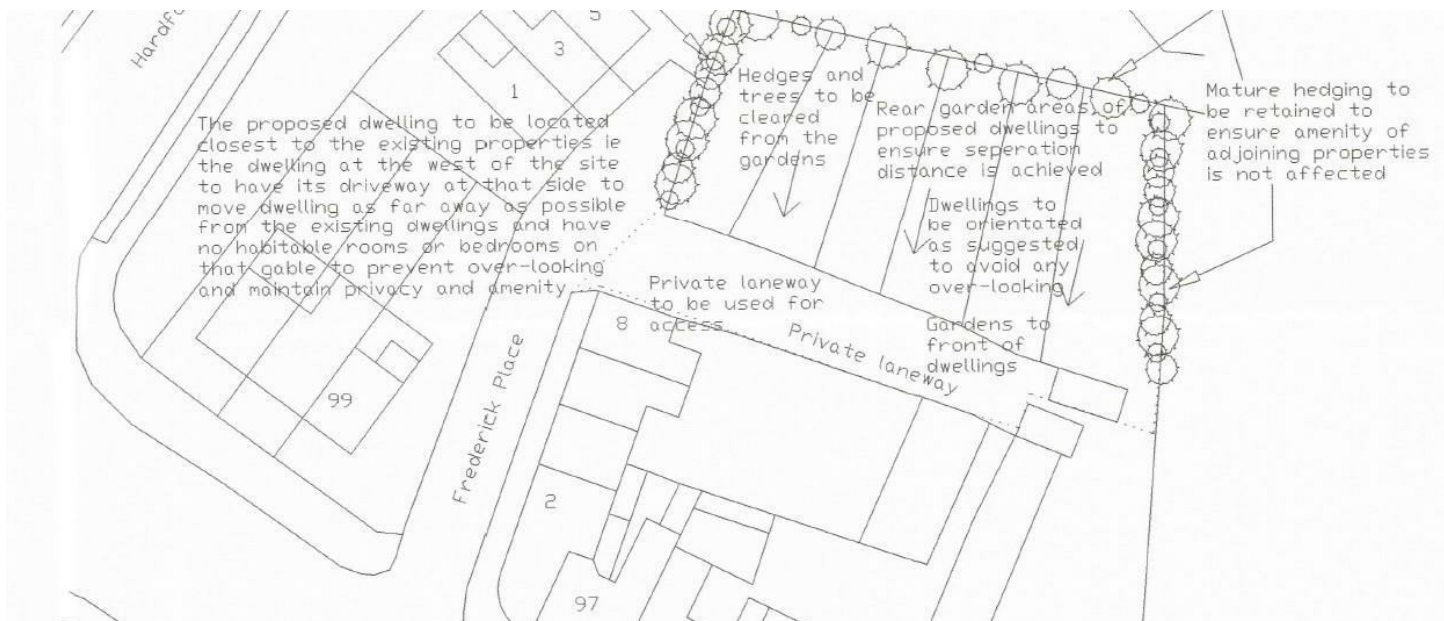 Hardf
5
3
1
The proposed dwelling to be located
closest to the existing properties ie
the dwelling at the west of the site
to have its driveway at that side to
move dwelling as far away as possible
from the existing dwellings and have
no habitable rooms or bedrooms on
that gable to prevent over-looking
and maintain privacy and amenity
Hedges and
trees to be
cleared
from the
gardens
Rear garden areas of
proposed dwellings to
ensure seperation
distance is achieved
Mature hedging to
be retained to
ensure amenity of
adjoining properties
is not affected
Dwellings to
be orientated
as suggested
to avoid any
over-looking
Private laneway
to be used for
access
Gardens to
front of
dwellings
Private laneway
8
Frederick Place
99
2
97